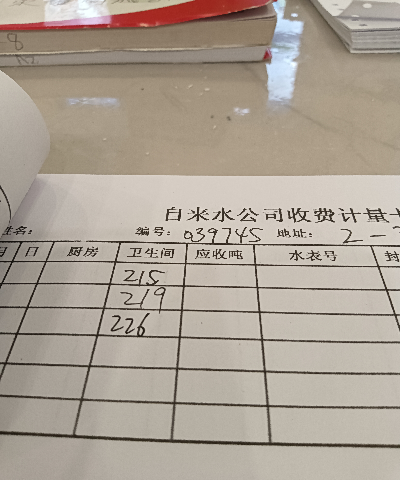 8
自来水公司收费计量卡
姓名: 编号: 039745 地址: 2-
月 日 厨房 卫生间 应收吨 水表号 封
215
219
226